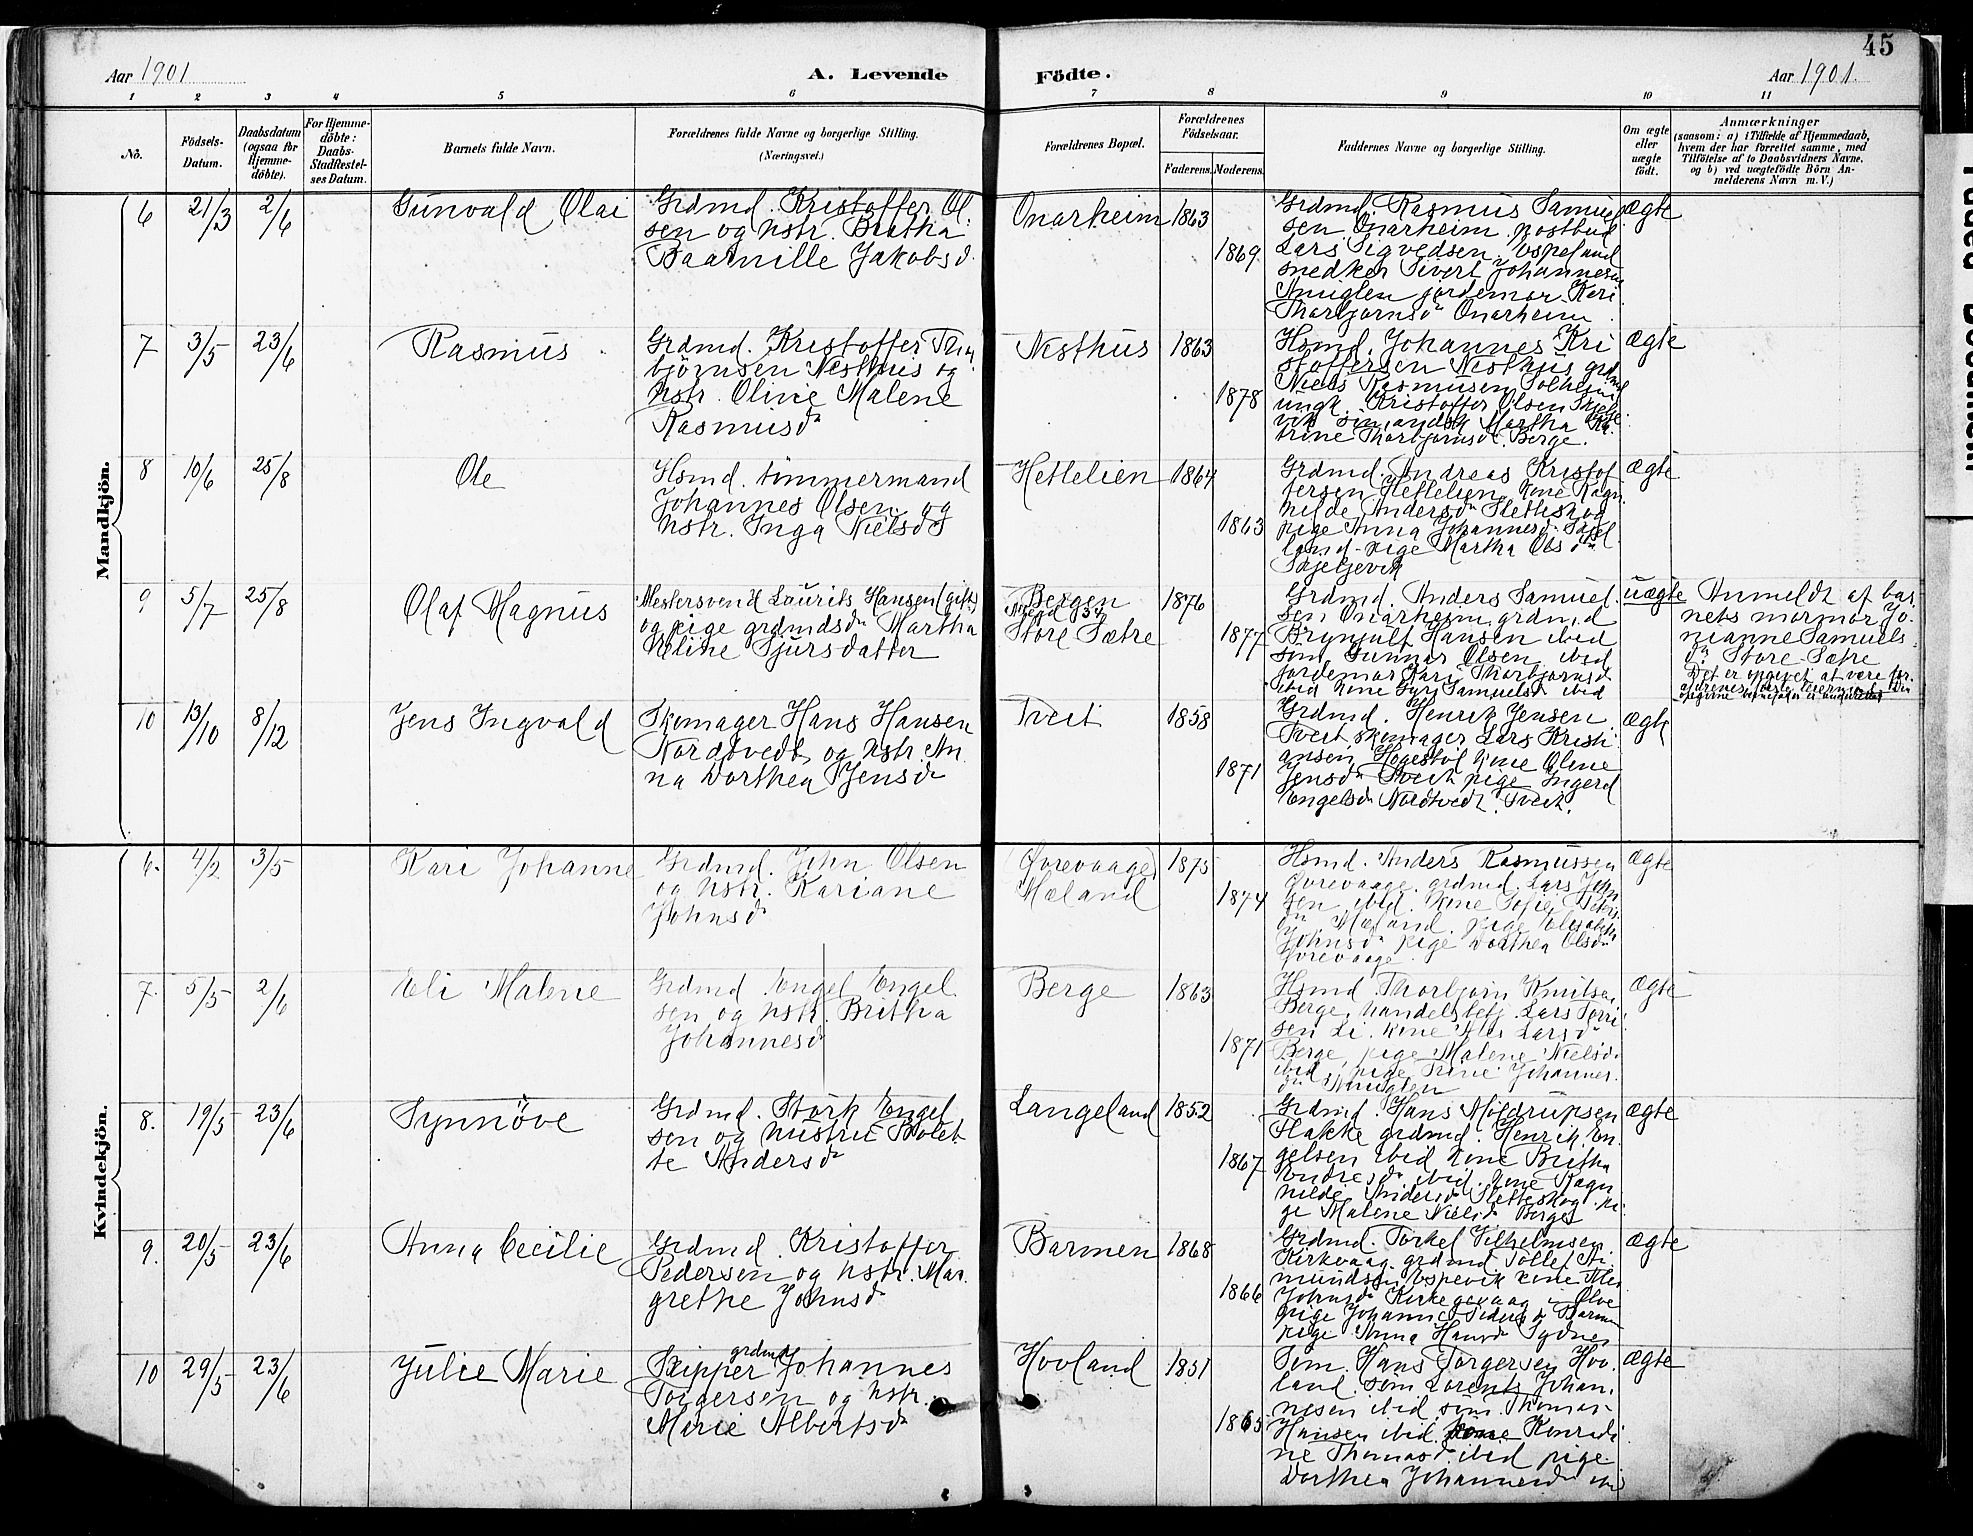 45
Aar 1901
A. Levende
Födte.
Aar 1901.
1 2 3 4 5 6 7 8 9 10 11
No.
Födsels-
Datum.
Daabsdatum
(ogsaa for
Hjemme-
döbte).
For Hjemme-
döbte:
Daabs-
Stadfæstel-
ses Datum.
Barnets fulde Navn.
Forældrenes fulde Navne og borgerlige Stilling.
(Næringsvei.)
Forældrenes Bopæl.
Forældrenes
Födselsaar.
Faderens. Moderens.
Faddernes Navne og borgerlige Stilling.
Om ægte
eller
uægte
födt.
Anmærkninger
(saasom: a) i Tilfælde af Hjemmedaab,
hvem der har forrettet samme, med
Tilföielse af to Daabsvidners Navne,
og b) ved uægtefödte Börn An-
melderens Navn m. V.)
Mandkjön.
6 21/3 2/6
Gunvald Olai
Grdmd. Kristoffer Ol-
sen og hstr. Britha
Jakobsd.
Onarheim
1863
1869
Grdmd. Rasmus Samuel
sen Onarheim postbud
Lars Sigvedsen Espeland
snedker Sivert Johannesen
Anuglen jordemor Kari
Thorbjørnsd Onarheim
ægte
7 3/5 23/6
Rasmus
Grdmd. Kristoffer Thor
bjørnsen Nesthus og
hstr. Oline Malene
Rasmusd
Nesthus
1863
1878
Hsmd. Johannes Kri
stoffersen Nesthus grdmd
Niels Rasmusen Solheim
ungk. Kristoffer Olsen
Martha Ka
trine Thorbjørnsd. Berge.
ægte
8 10/6 25/8
Ole
Hsmd. tømmermand
Johannes Olsen og
hstr. Inga Nielsd
Hettelien
1864
1863
Grdmd. Andreas Kristof
fersen Hettelien kone Ragn
hilde Andersd Sletteskog
pige Anna Johannesd
land pige Martha Olsd
ægte
9 5/7 25/8
Olaf Magnus
Mestersvend Laurits Hansen (gift)
og pige grdmdsd Martha
Oline Sjursdatter
Bergen
Store Sætre
1876
1877
Grdmd. Anders Samuel
sen Onarheim grdmd
Brynjulf Hansen ibid
søn Gunnar Olsen ibid
jordemor Kari Thorbjørnsd
ibid kone Guri Samuelsd ibid
uægte
Anmeldt af bar
nets mormor Jo
nianne Samuels
d. Store Sætre
Det er opgivet at være for
10 13/10 8/12
Jens Ingvald
Skomager Hans Hansen
Nordtvedt og hstr. An
na Dorthea Jensd
Tveit
1858
1871
Grdmd. Henrik Jensen
Tveit skomager Lars Kristi
ansen Høgestøl kone Oline
Jensd Tveit pige Ingerd
Engelsd Nordtvedt Tveit.
ægte
Kvindekjön.
6. 4/2 3/5
Kari Johanne
Grdmd. John Olsen
og hstr. Kariane
Johnsd
Øvrevaage
Mæland
1875
1874
Hsmd. Anders Rasmussen
Øvrevaage. grdmd. Lars John
sen ibid. kone Sofie
Mæland. pige Elisabeth
Johnsd pige Dorthea Olsd
Øvrevaage
ægte
7. 5/5 2/6
Eli Malene
Grdmd. Engel Engel
sen og hstr. Britha
Johannesd
Berge
1863
1871
Hsmd. Thorbjørn Knutsen
Berge handelsbetj. Lars
sen Li. kone Larsd
Berge, pige Malene Nielsd
ibid, pige Trine Johannes
d Anuglen
ægte
8. 19/5 23/6
Synnøve
Grdmd. Størk Engel
sen og hustru Bolet
te Andersd
Langeland
1852
1867
Grdmd. Hans Møldrupsen
Flakke grdmd. Henrik En
gelsen ibid kone Britha
Endresd ibid. kone Ragn
hilde Andersd Sletteskog pi
ge Malene Nielsd Berge
ægte
9. 20/5 23/6
Anna Cecilie
Grdmd. Kristoffer
Pedersen og hstr. Mar
grethe Johnsd
Barmen
1868
1866
Grdmd. Torkel Vilhelmsen
Kirkvaag. grdmd. Tollef
mundsen Espevik kone
Johnsd Kirkegevaag i Ølve
pige Johanne Pedersd Barmen
pige Anna Hansd Sydnes
ægte
10 29/5 23/6
Julie Marie
grdmd
Skipper Johannes
Torgersen og hstr.
Marie Albertsd
Hovland
1851
1865
Søn Hans Torgersen Hov
land. søn Lorents Johan
nesen ibid søn Thomas
Hansen ibid. kone Konradi
ne Thomasd ibid pige
Dorthea Johannesd ibid
ægte